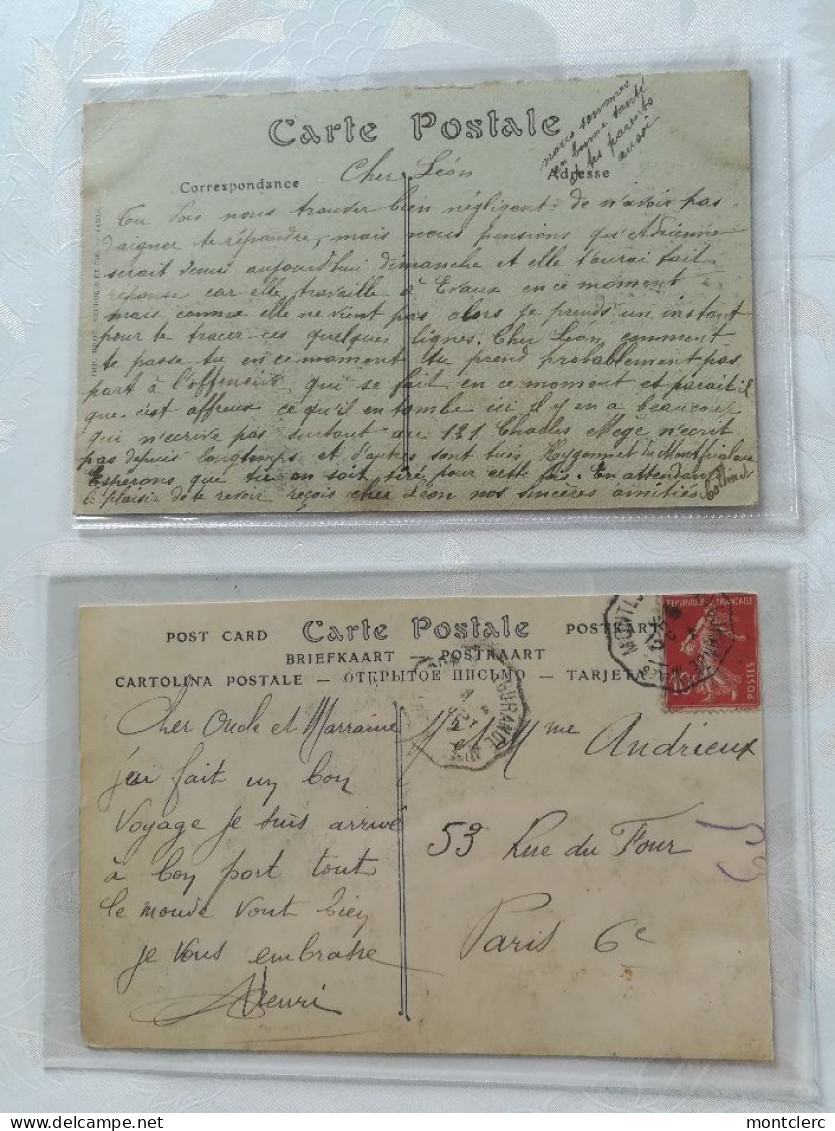 Carte Postale
nous sommes
en bonne santé
et tes parents
aussi
Correspondance
Adresse
Cher Léon
Tu dois nous trouver bien négligent de n'avoir pas
daigner te répondre, mais nous pensions qu'Adrienne
serait venus aujourd'hui dimanche et elle t'aurai fait
réponse car elle travaille à Evaux en ce moment
mais comme elle ne vient pas alors je prends un instant
pour te tracer ces quelques lignes. Cher Léon, comment
te passe-tu en ce moment tu prend probablement pas
part à l'offensive qui se fait en ce moment et parait il
que c'est affreux ce qu'il en tombe ici il y en a beaucoup
qui n'écrive pas surtout au 121 Charles Mege n'écrit
pas depuis longtemps et d'autres sont tués
Espérons que tu en soit tiré pour cette fois. En attendant
le plaisir de te revoir reçois cher Léon nos sincères amitiés
POST CARD Carte Postale POSTKARTE
BRIEFKAART — POSTKAART
CARTOLINA POSTALE — ОТКРЫТОЕ ПИСЬМО — TARJETA
REPUBLIQUE FRANÇAISE
10
POSTES
Cher Oncle et Marraine
j'ai fait un bon
voyage je suis arrivé
à bon port tout
le monde vont bien
je vous embrasse
Henri
Mr et Mme Andrieux
53 Rue du Four
Paris 6e
montclerc